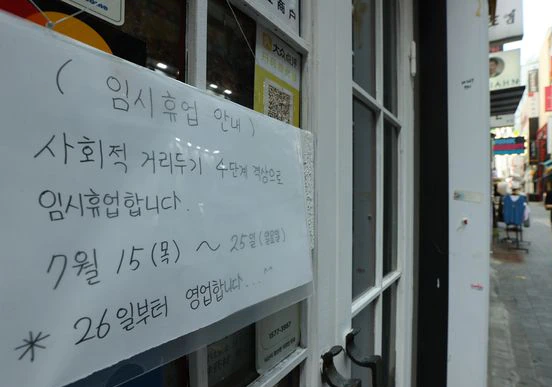 ( 임시휴업 안내 )
사회적 거리두기 4단계 격상으로
임시휴업합니다.
7월 15(목) ~ 25일(일요일)
* 26일부터 영업합니다....^^
大众点评
1577-3957
JAHN